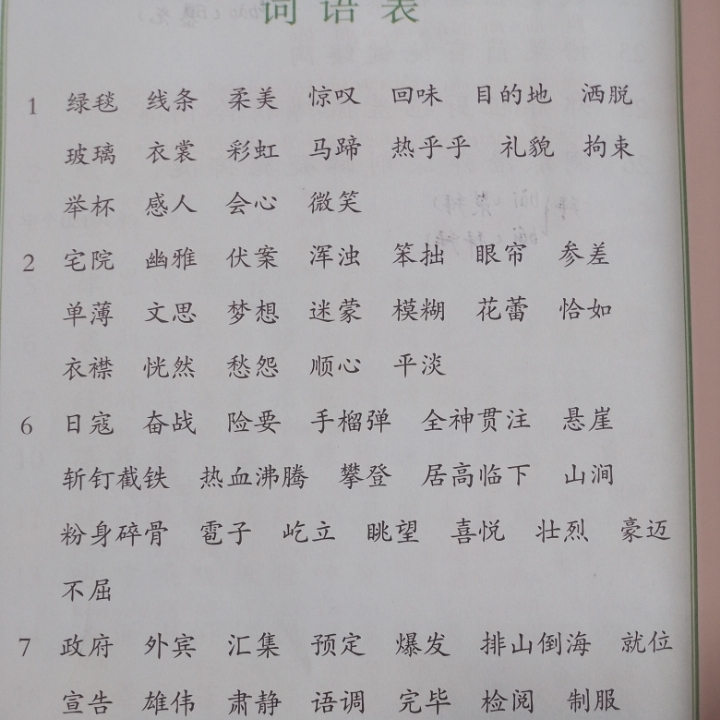 词语表
1 绿毯 线条 柔美 惊叹 回味 目的地 洒脱
玻璃 衣裳 彩虹 马蹄 热乎乎 礼貌 拘束
举杯 感人 会心 微笑
2 宅院 幽雅 伏案 浑浊 笨拙 眼帘 参差
单薄 文思 梦想 迷蒙 模糊 花蕾 恰如
衣襟 恍然 愁怨 顺心 平淡
6 日寇 奋战 险要 手榴弹 全神贯注 悬崖
斩钉截铁 热血沸腾 攀登 居高临下 山涧
粉身碎骨 雹子 屹立 眺望 喜悦 壮烈 豪迈
不屈
7 政府 外宾 汇集 预定 爆发 排山倒海 就位
宣告 雄伟 肃静 语调 完毕 检阅 制服